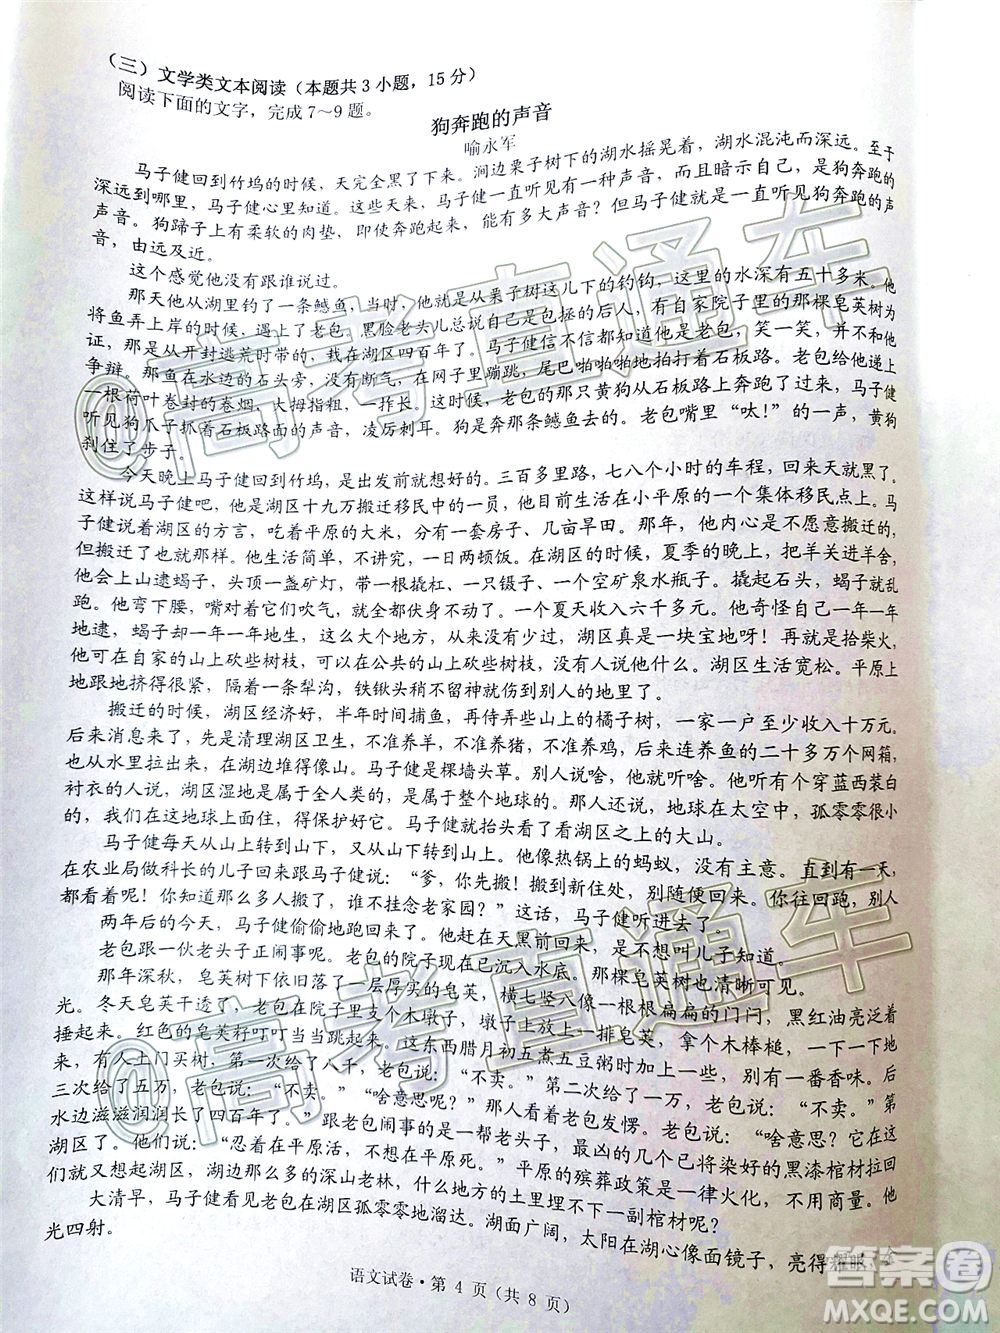 （三）文学类文本阅读（本题共3小题，15分）
阅读下面的文字，完成7～9题。
狗奔跑的声音
喻永军
马子健回到竹坞的时候，天完全黑了下来。涧边栗子树下的湖水摇晃着，湖水混沌而深远。至于
深远到哪里，马子健心里知道。这些天来，马子健一直听见有一种声音，而且暗示自己，是狗奔跑的
声音。狗蹄子上有柔软的肉垫，即使奔跑起来，能有多大声音？但马子健就是一直听见狗奔跑的声
音，由远及近。
这个感觉他没有跟谁说过。
那天他从湖里钓了一条鳡鱼，当时，他就是从栗子树这儿下的钓钩，这里的水深有五十多米。他
将鱼弄上岸的时候，遇上了老包，黑脸老头儿总说自己是包拯的后人，有自家院子里的那棵皂荚树为
证，那是从开封逃荒时带的，栽在湖区四百年了。马子健信不信都知道他是老包，笑一笑，并不和他
争辩。那鱼在水边的石头旁，没有断气，在网子里蹦跳，尾巴啪啪啪地拍打着石板路。老包给他递上
一根荷叶卷封的卷烟，大拇指粗，一拃长。这时候，一只黄狗从石板路上奔跑了过来，马子健
听见狗爪子抓着石板路面的声音，凌厉刺耳。狗是奔那条鳡鱼去的。老包嘴里“呔！”的一声，黄狗
刹住了步子。
今天晚上马子健回到竹坞，是出发前就想好的。三百多里路，七八个小时的车程，回来天就黑了。
这样说马子健吧，他是湖区十九万搬迁移民中的一员，他目前生活在小平原的一个集体移民点上。马
子健说着湖区的方言，吃着平原的大米，分有一套房子、几亩旱田。那年，他内心是不愿意搬迁的，
但搬迁了也就那样。他生活简单，不讲究，一日两顿饭。在湖区的时候，夏季的晚上，把羊关进羊舍，
他就上山逮蝎子，头顶一盏矿灯，带一根撬杠、一只镊子、一个空矿泉水瓶子。撬起石头，蝎子就乱
跑。他弯下腰，嘴对着它们吹气，就全都伏身不动了。一个夏天收入六千多元。他奇怪自己一年一年
地逮，蝎子却一年一年地生，这么大个地方，从来没有少过，湖区真是一块宝地呀！再就是拾柴火，
在自家的山上砍些树枝，可以在公共的山上砍些树枝，没有人给他说什么。湖区生活宽松。平原上
地跟地挤得很紧，隔着一条犁沟，铁锹头稍不留神就伤到别人的地里了。
搬迁的时候，湖区经济好，半年时间捕鱼，再侍弄些山上的橘子树，一家一户至少收入十万元。
后来消息来了，先是清理湖区卫生，不准养羊，不准养猪，不准养鸡，后来连养鱼的二十多万个网箱，
也从水里拉出来，在湖边堆得像山。马子健是棵墙头草。别人说啥，他就听啥。他听有个穿蓝西装白
衬衣的人说，湖区湿地是属于全人类的，是属于整个地球的。那人还说，地球在太空中，孤零零很小
的，我们在这地球上面住，得保护好它。马子健就抬头看了看湖区之上的大山。
马子健每天从山上转到山下，又从山下转到山上。他像热锅上的蚂蚁，没有主意。直到有一天，
在农业局做科长的儿子回来跟马子健说：“爹，你先搬！搬到新住处，别随便回来。你往回跑，别人
都看着呢！你知道这次那么多人搬了，谁不挂念老家园？”这话，马子健听进去了。
两年后的今天，马子健偷偷地跑回来了。他在天黑前回来，是不想叫儿子知道。
老包跟一伙老头子正闹事呢。老包的院子现在已经沉入水底。那棵皂荚树也清晰可见。
那年深秋，皂荚树下依旧落了一层厚实的皂荚，横七竖八像一根根扁扁的门闩，黑红油亮泛着
光。冬天皂荚干透了，老包在院子里支个木墩子，墩子上放一排皂荚，拿个木棒槌，一下一下地
捶起来。红色的皂荚籽叮叮当当跳起来。这东西腊月初五煮五豆粥时加上一些，别有一番香味。后
来，有人上门买树，第一次给了八千，老包说：“不卖。”第二次给了一万，老包说：“不卖。”第
三次给了五万，老包说：“不卖。”“啥意思呢？”来人看着老包发愣。老包说：“啥意思？它在这
水边滋滋润润长了四百年了。”跟老包闹事的是一帮老头子，最凶的几个已将染好的黑漆棺材拉回
湖区了。他们说：“忍着在平原活，不想在平原死。”平原的殡葬政策是一律火化，不用商量。他
们就又想起湖区，湖区那么多的深山老林，什么地方的土里埋不下一副棺材呢？
大清早，马子健看见老包在湖区孤零零地溜达。湖面广阔，太阳在湖心像面镜子，亮得耀眼，金
光四射。
语文试卷·第 4 页（共 8 页）
@高考直通车
@高考直通车
答案圈
MXQE.COM